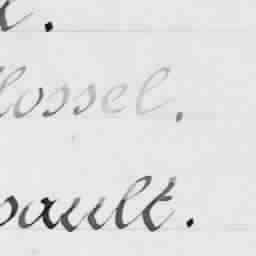 lossel.
pault.